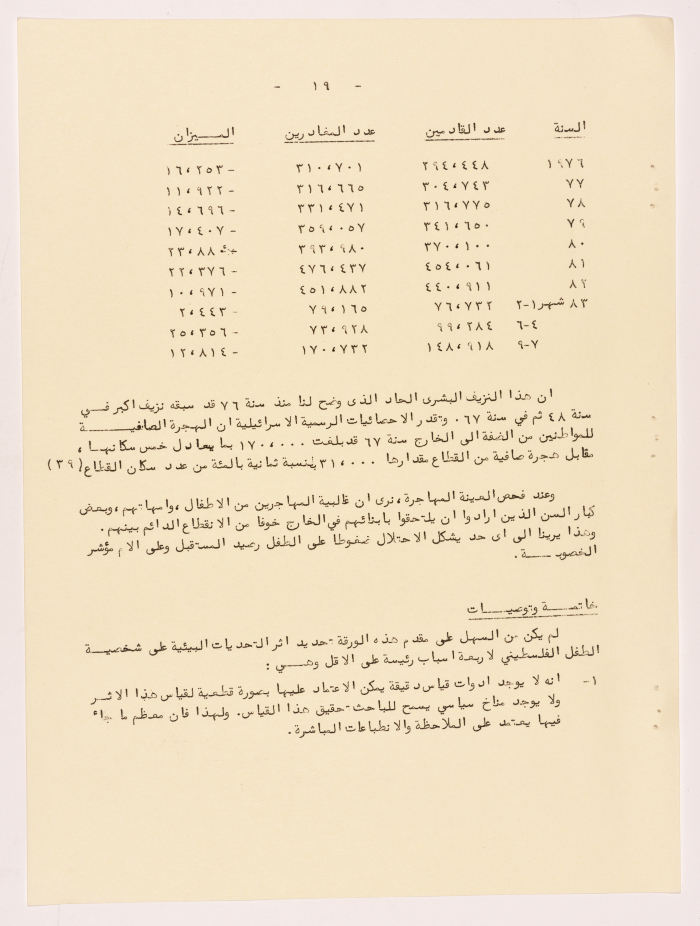 - ١٩ -
السنة عدد القادمين عدد المغادرين الميزان
١٩٧٦ ٢٩٤،٤٤٨ ٣١٠،٧٠١ -١٦،٢٥٣
٧٧ ٣٠٤،٧٤٣ ٣١٦،٦٦٥ -١١،٩٢٢
٧٨ ٣١٦،٧٧٥ ٣٣١،٤٧١ -١٤،٦٩٦
٧٩ ٣٤١،٦٥٠ ٣٥٩،٠٥٧ -١٧،٤٠٧
٨٠ ٣٧٠،١٠٠ ٣٩٣،٩٨٠ ٢٣،٨٨٠
٨١ ٤٥٤،٠٦١ ٤٧٦،٤٣٧ -٢٢،٣٧٦
٨٢ ٤٤٠،٩١١ ٤٥١،٨٨٢ -١٠،٩٧١
٨٣ شهر ١-٢ ٧٦،٧٣٢ ٧٩،١٦٥ -٢،٤٤٣
٤-٦ ٩٩،٢٨٤ ٧٣،٩٢٨ -٢٥،٣٥٦
٧-٩ ١٤٨،٩١٨ ١٧٠،٧٣٢ -١٢،٨١٤
ان هذا النزيف البشرى الحاد الذى وضح لنا منذ سنة ٧٦ قد سبقه نزيف اكبر في
سنة ٤٨ ثم في سنة ٦٧. وتقدر الاحصائيات الرسمية الاسرائيلية ان الهجرة الصافية
للمواطنين من الضفة الى الخارج سنة ٦٧ قد بلغت ١٧٠،٠٠٠ بما يعادل خمس سكانها،
مقابل هجرة صافية من القطاع مقدارها ٣١،٠٠٠ بنسبة ثمانية بالمئة من عدد سكان القطاع (٣٩)
وعند فحص العينة المهاجرة، نرى ان غالبية المهاجرين من الاطفال، وامهاتهم، وبعض
كبار السن الذين ارادوا ان يلتحقوا بابنائهم في الخارج خوفا من الانقطاع الدائم بينهم.
وهذا يرينا الى اى حد يشكل الاحتلال ضغوطا على الطفل رصيد المستقبل وعلى الام مؤشر
الخصوبة.
خاتمة وتوصيات
لم يكن من السهل على مقدم هذه الورقة تحديد اثر التحديات البيئية على شخصية
الطفل الفلسطيني لاربعة اسباب رئيسة على الاقل وهي :
١- انه لا يوجد ادوات قياس دقيقة يمكن الاعتماد عليها بصورة قطعية لقياس هذا الاثر
ولا يوجد مناخ سياسي يسمح للباحث تحقيق هذا القياس. ولهذا فان معظم ما جاء
فيها يعتمد على الملاحظة والانطباعات المباشرة.